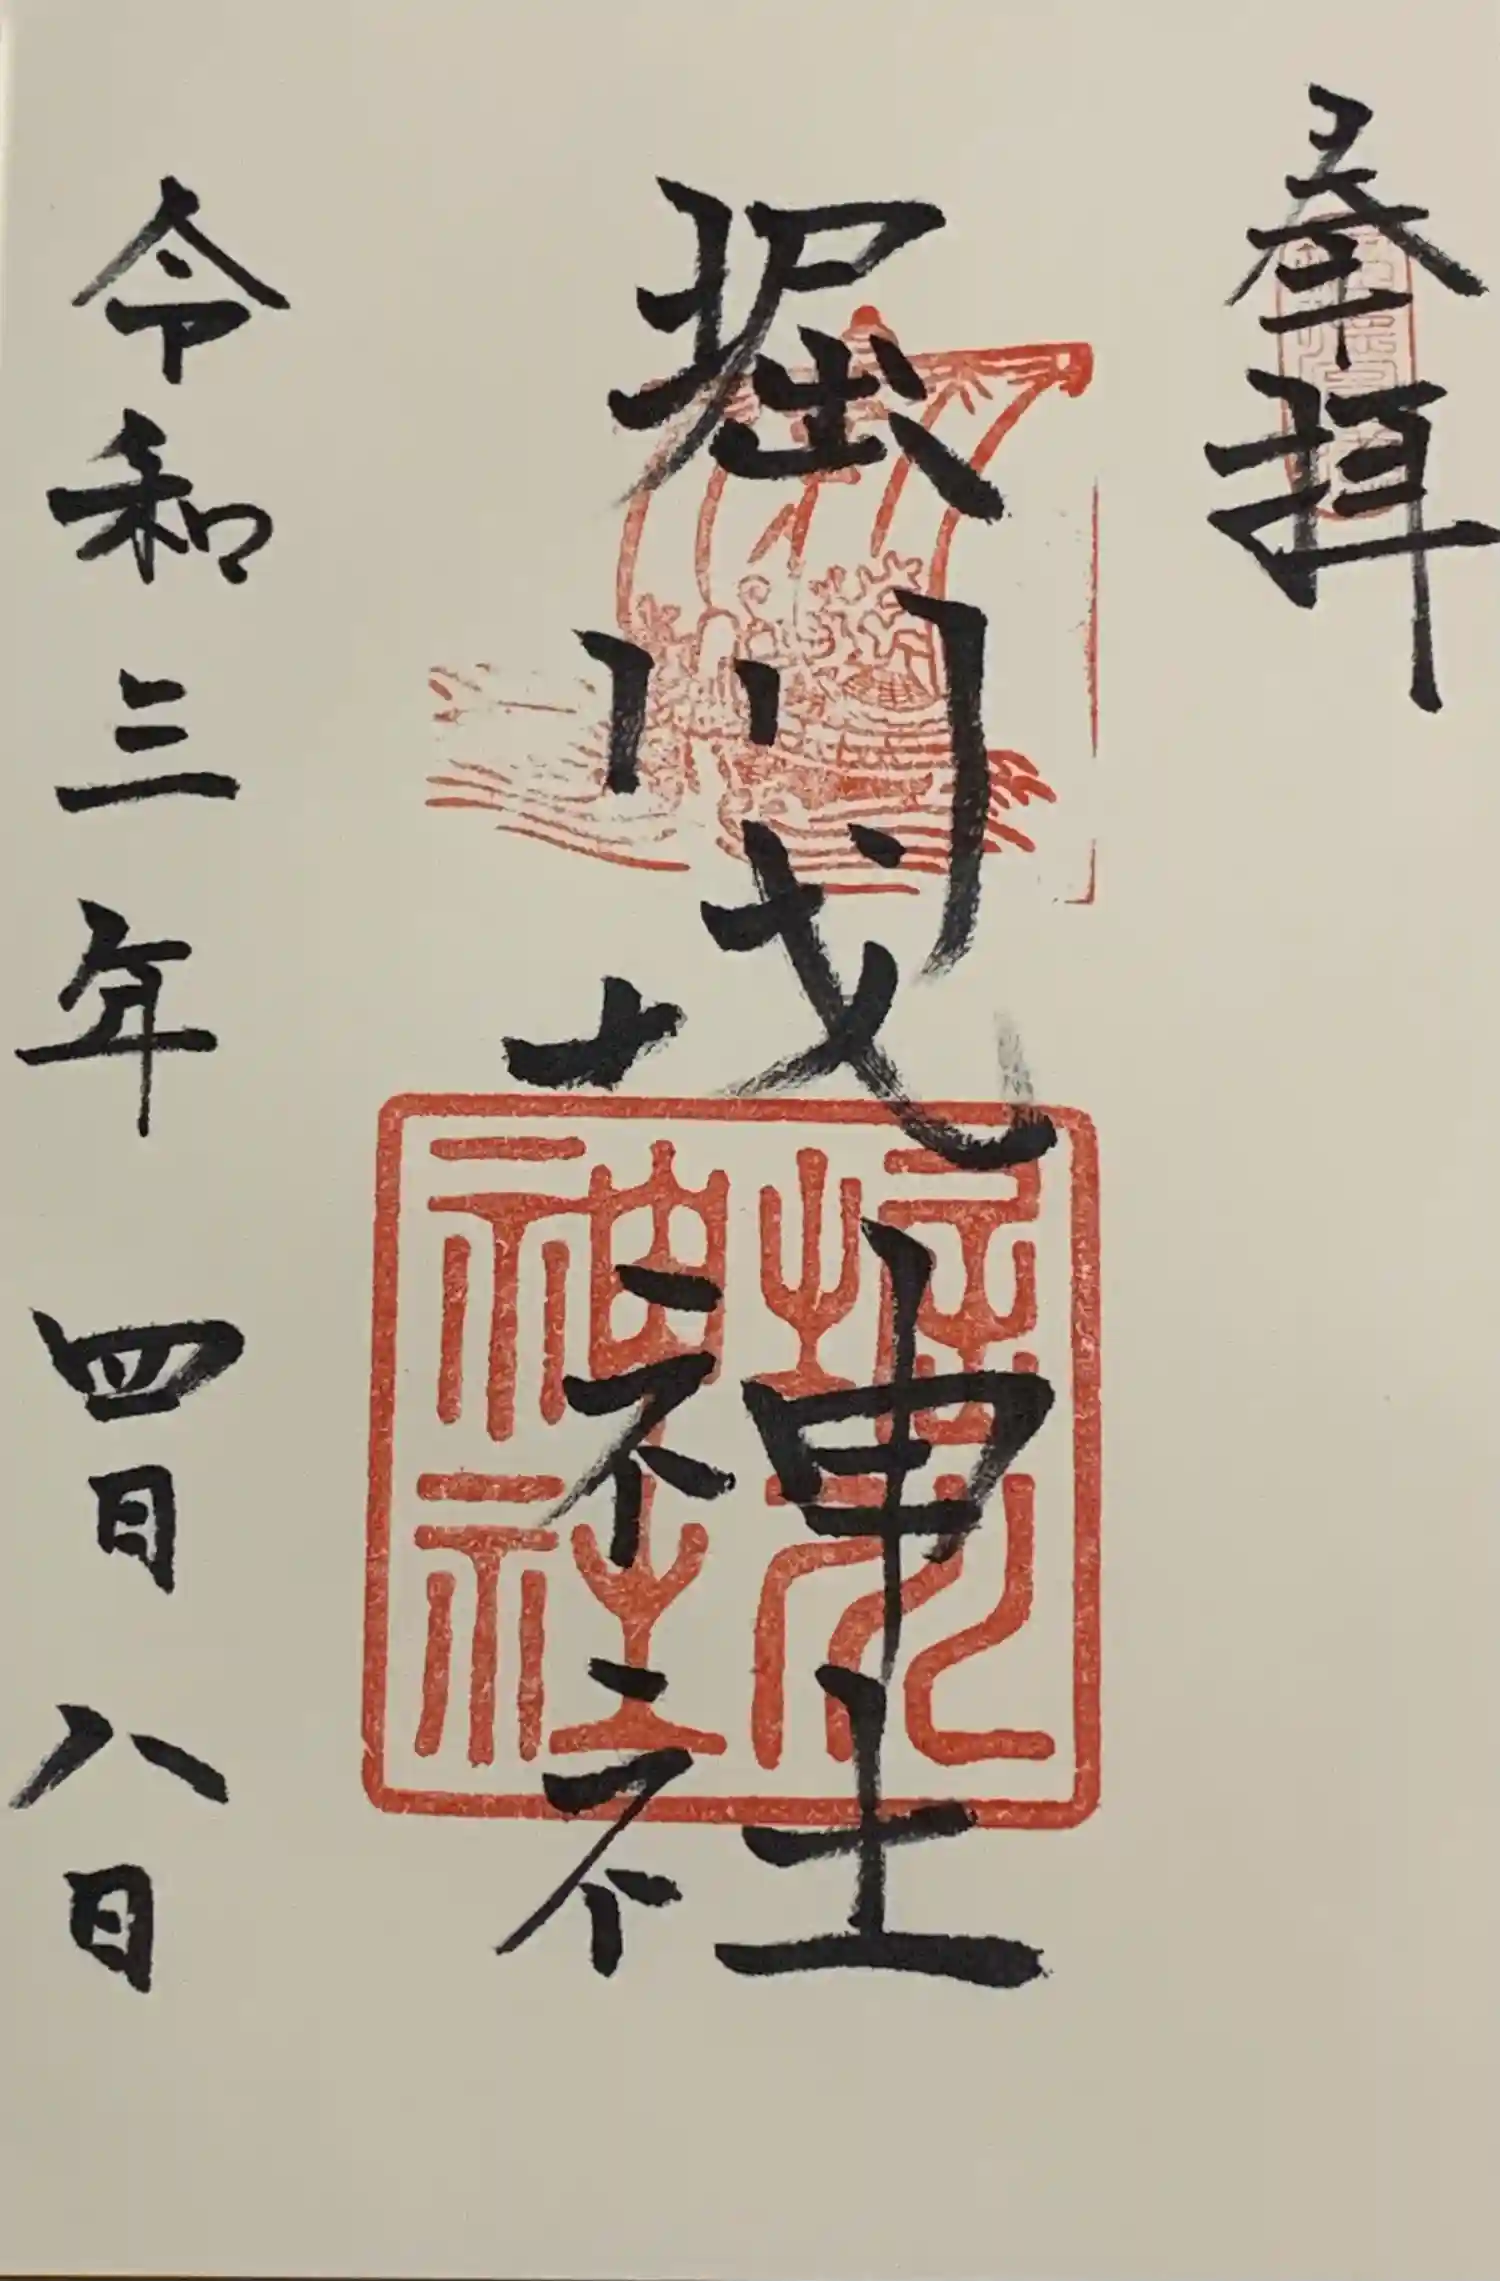 奉拝
堀川戎神社
令和三年四月八日